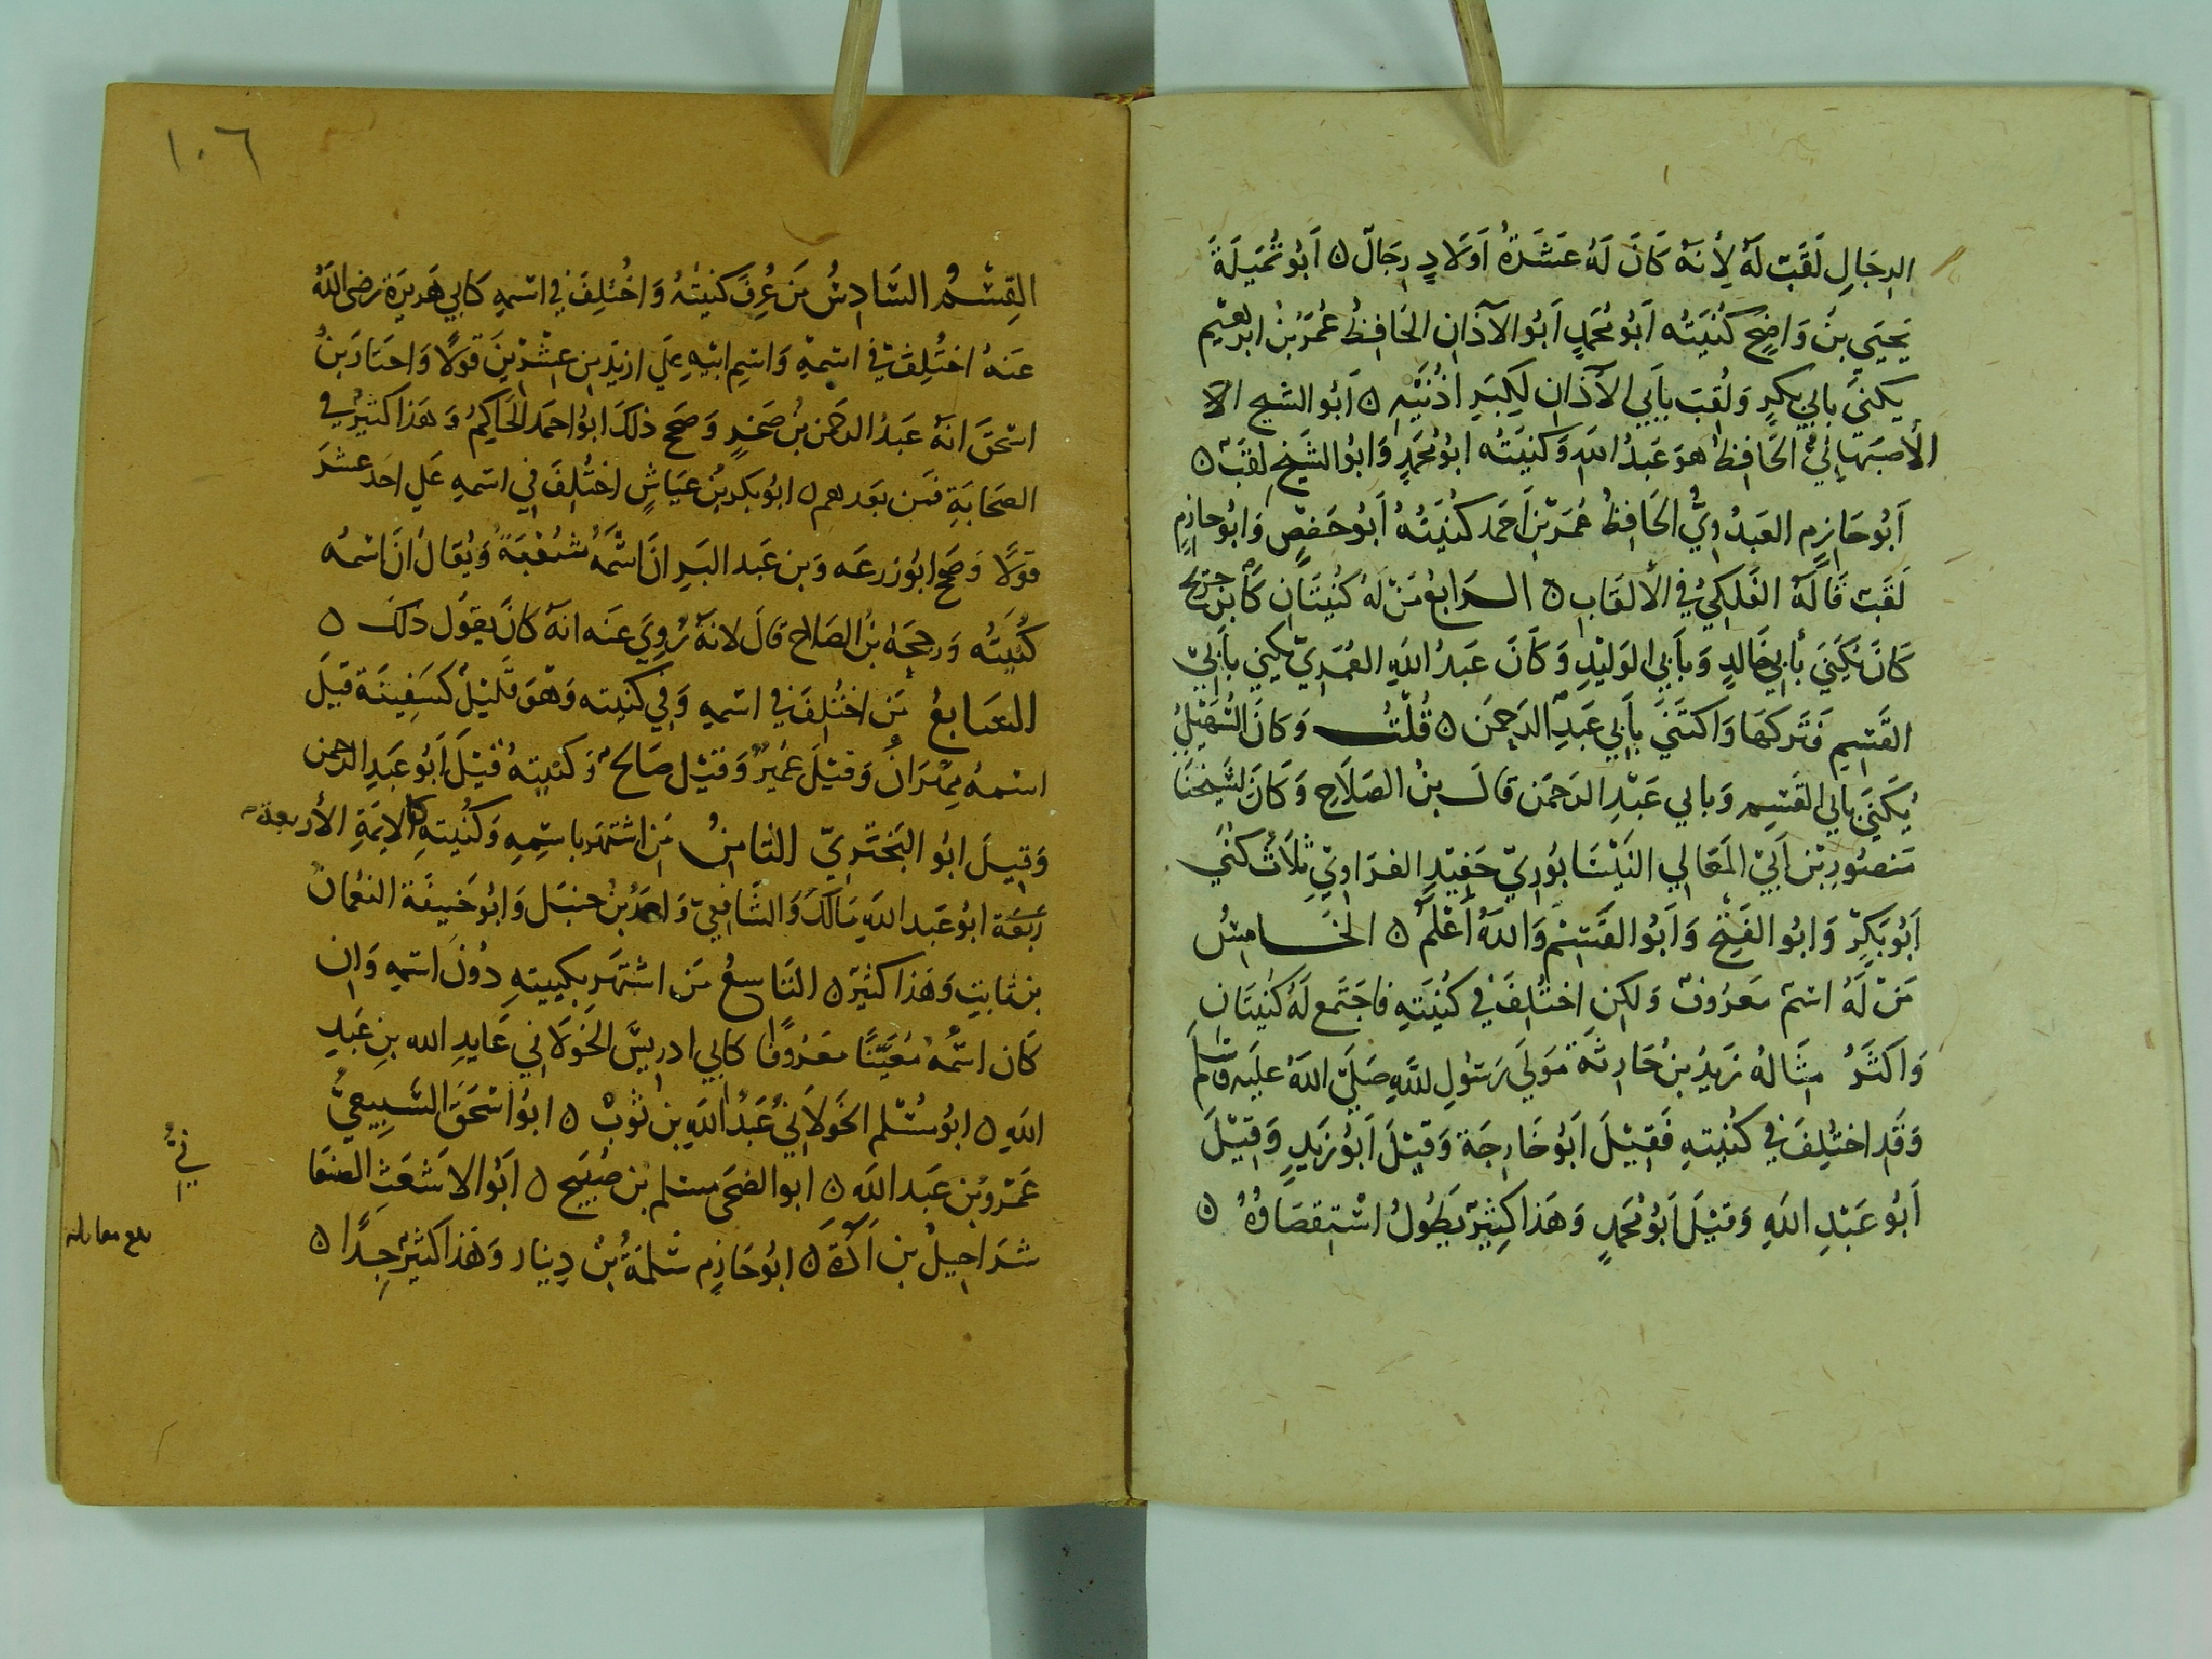 الرجال لقب له لأنه كان له عشرة اولاد رجال ٥ ابو تميلة
يحيي بن واضح كنيته ابو محمد ابو الآذان الحافظ عمر بن ابرهيم
يكنى بابي بكر ولقب بأبي الآذان لكبر اذنيه ٥ ابو الشيخ الا
الأصبهاني الحافظ هو عبد الله وكنيته ابو محمد وابو الشيخ لقب ٥
ابو حازم العبدوي الحافظ عمر بن احمد كنيته ابو حفص وابو حازم
لقب قاله الفلكي في الألقاب ٥ الرابع من له كنيتان كابن جريج
كان يكني بأبي خالد وبأبي الوليد وكان عبد الله العمري يكني بأبي
القسم فتركها واكتني بأبي عبد الرحمن ٥ قلت وكان السهيلي
يكني بابي القسم وبابي عبد الرحمن قال بن الصلاح وكان لشيخنا
منصور بن ابي المعالي النيسابوري حفيد الفراوي ثلاث كني
ابو بكر وابو الفتح وابو القسم والله اعلم ٥ الخامس
من له اسم معروف ولكن اختلف في كنيته فاجتمع له كنيتان
واكثر مثاله زيد بن حارثة مولي رسول الله صلي الله عليه وسلم
وقد اختلف في كنيته فقيل ابو خارجة وقيل ابو زيد وقيل
ابو عبد الله وقيل ابو محمد وهذا كثير يطول استقصاؤه ٥
١٠٦
القسم السادس من عرف كنيته واختلف في اسمه كابي هريرة رضى الله
عنه اختلف في اسمه واسم ابيه علي ازيد من عشرين قولا واختار بن
اسحق انه عبد الرحمن بن صخر وصحح ذلك ابو احمد الحاكم وهذا كثير في
الصحابة فمن بعدهم ٥ ابو بكر بن عياش اختلف في اسمه علي احد عشر
قولا وصحح ابو زرعه وبن عبد البر ان اسمه شعبة ويقال ان اسمه
كنيته ورجحه بن الصلاح قال لانه روي عنه انه كان يقول ذلك ٥
السابع من اختلف في اسمه وفي كنيته وهو قليل كسفينة قيل
اسمه مهران وقيل عمير وقيل صالح وكنيته قيل ابو عبد الرحمن
وقيل ابو البختري الثامن من اشتهر باسمه وكنيته كالايمة الأربعة
ابو عبد الله مالك والشافعي واحمد بن حنبل وابو حنيفة النعمان
بن ثابت وهذا كثير ٥ التاسع من اشتهر بكنيته دون اسمه وان
كان اسمه معينا معروفا كابي ادريس الخولاني عايد الله بن عبد
الله ٥ ابو مسلم الخولاني عبد الله بن ثوب ٥ ابو اسحق السبيعي
عمرو بن عبد الله ٥ ابو الضحى مسلم بن صبيح ٥ ابو الاشعث الصنعا
ني
شراحيل بن آدة ٥ ابو حازم سلمة بن دينار وهذا كثير جدا ٥
بلغ مقابلة